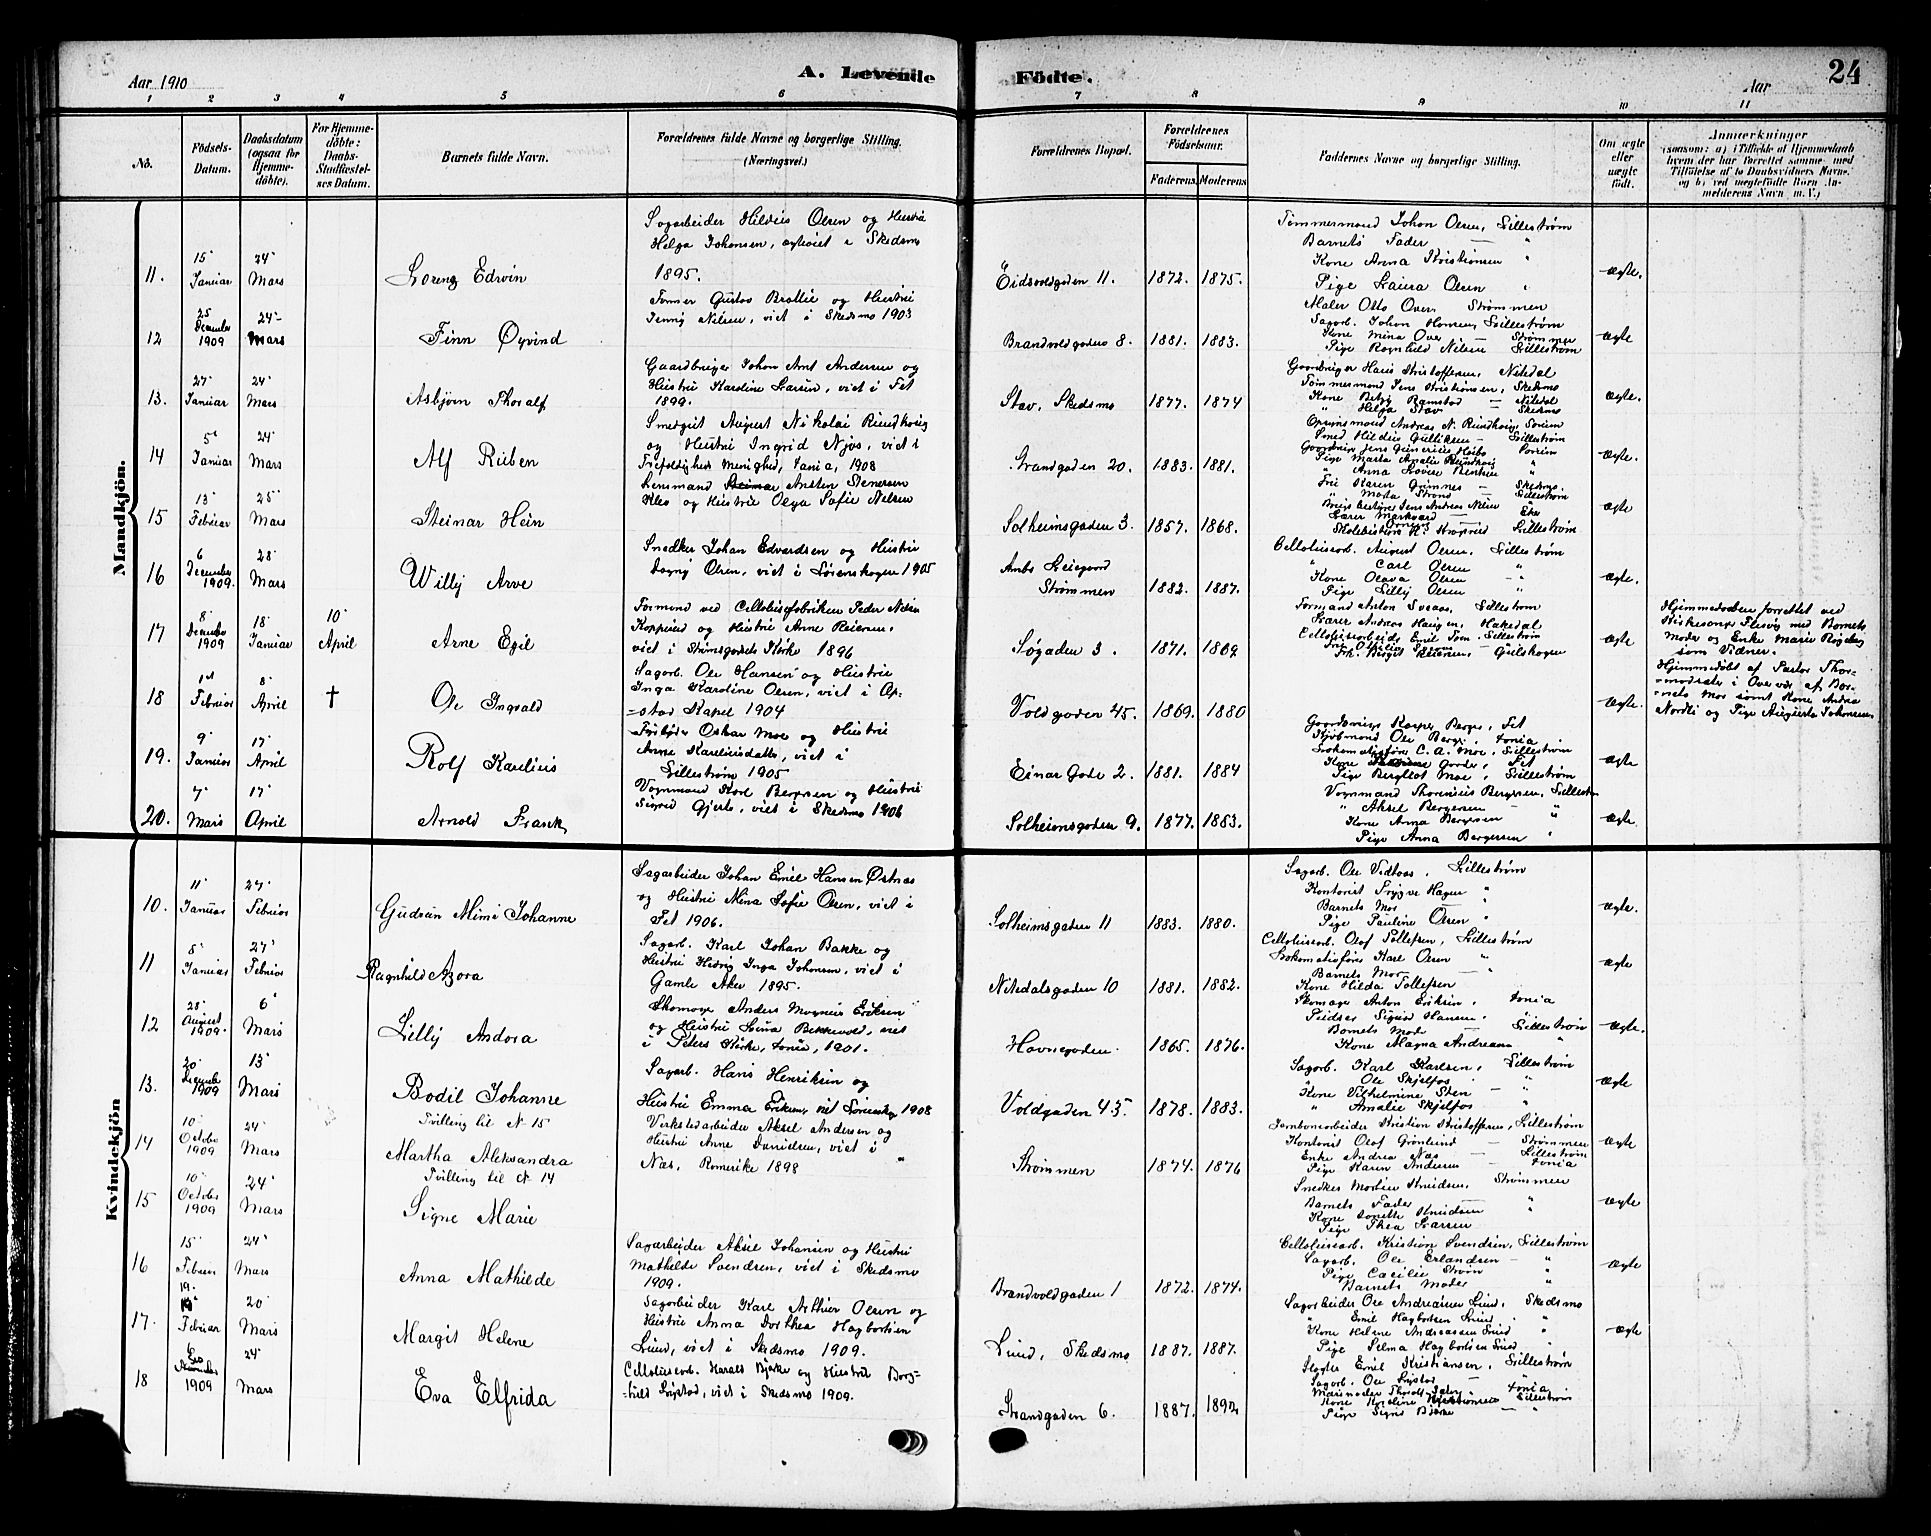 Aar 1910
A. Levende
Födte.
Aar
24
1 2 3 4 5 6 7 8 9 10 11
No.
Födsels-Datum.
Daabsdatum (ogsaa for Hjemme-döbte).
For Hjemme-döbte: Daabs-Stadfæstel-ses Datum.
Barnets fulde Navn.
Forældrenes fulde Navne og borgerlige Stilling. (Næringsvei.)
Forældrenes Bopæl.
Forældrenes Födselsaar.
Faderens. Moderens.
Faddernes Navne og borgerlige Stilling.
Om ægte eller uægte födt.
Anmærkninger
(saasom: a) i Tilfælde af Hjemmedaab hvem der har forrettet samme med Tilföielse af to Daabsvidners Navne, og b) ved uægtefödte Börn An-melderens Navn m. V.)
Mandkjön.
11. 15 Januar 24 Mars Lorenz Edvin
Sagarbeider Hildeus Olsen og Hustru
Helga Johansen, ægteviet i Skedsmo
1895.
Eidsvoldgaden 11. 1872. 1875.
Tømmermand Johan Olsen, Lillestrøm
Barnets Fader — "
Kone Anna Kristiansen "
Pige Laura Olsen "
ægte.
12 25 December 1909 24 Mars Finn Øyvind
Gustav Brattli og Hustru
Jenny Nilsen, viet i Skedsmo 1903
Brandvoldgaden 8. 1881. 1883.
Maler Otto Over. Strømmen
Sagarb. Johan Hansen, Lillestrøm
Kone Mina Over — Strømmen
Pige Ragnhild Nilsen Lillestrøm
ægte
13. 27 Januar 24 Mars Asbjørn Thoralf
Gaardbruger Johan Arnt Andersen og
Hustru Karoline Larsen, viet i Fet
1899.
Stav, Skedsmo 1877. 1874
Gaardbruger Hans Kristoffersen, Nitedal
Tømmermand Jens Kristiansen, Skedsmo
Kone Betzy Ramstad — Nitedal
" Helga Stav — Skedsmo
ægte.
14 5 Januar 24 Mars Alf Ruben
Smedgut August Nikolai Rundhaug
og Hustru Ingrid Njøs, viet i
Trefoldigheds Menighed, Xania, 1908
Strandgaden 20. 1883. 1881.
Opsynsmand Andreas N. Rundhaug, Sørum
Smed Hildeus Gulliksen — Lillestrøm
Pige Marta Amalie Rundhaug "
ægte.
15 13 Februar 25 Mars Steinar Hein
Lensmand Austen Stenersen
Klev og Hustru Olga Sofie Nilsen
Solheimsgaden 3. 1857. 1868.
Frk Karen Grimnes — Skedsmo.
" Marta Strand — Lillestrøm
ægte
16 6 December 1909. 28 Mars Willy Arve
Snedker Johan Edvardsen og Hustru
Dagny Olsen, viet i Lørenskogen 1905
Strømmen 1882. 1887.
Cellulosearb. August Olsen. Lillestrøm
" Carl Olsen "
Kone Olava Olsen "
Pige Lilly Olsen "
ægte.
17 8 December 1909 18 Januar 10 April Arne Egil
Formand ved Cellulosefabriken Peder Nilsen
Kopperud og Hustru Anne Reiersen,
viet i Strømsgodsets Kirke 1896
Søgaden 3. 1871. 1869
Formand Anton Svaas, Lillestrøm
Lærer Andreas Haugen, Hakedal
ægte
Hjemmedaaben forrettet ved
Kirkesanger Flesvig med Barnets
Moder og Enke Marie
som Vidner.
18 1st Februar 8 April † Ole Ingvald
Sagarb. Ole Hansen og Hustru
Inga Karoline Olsen, viet i Ap=
=ostad Kapel 1904
Voldgaden 45. 1869. 1880
ægte.
Hjemmedøbt af Pastor Thor-
modsæter i Overvær af Bar-
nets Mor samt Kone Andrea
Nordli og Pige Augusta Johansen
19. 9 Januar 17 April Rolf Karelius
Fyrbøder Oskar Moe og Hustru
Anne Kareliusdatter, viet i
Lillestrøm 1905
Einar Gade 2. 1881. 1884
Gaardbruger Kasper Berger, Fet
Kjøbmand Ole Berger, Xania.
Lokomotivfører C. A. Moe, Lillestrøm
Pige Bergliot Moe, Lillestrøm
ægte
20. 7 Mars 17 April Arnold Frank
Vognmand Karl Bergersen og Hustru
Sigrid Gjerts, viet i Skedsmo 1906
Solheimsgaden 9. 1877. 1883.
Vognmand Thorenius Bergersen, Lillestrøm
" Aksel Bergersen — "
Kone Anna Bergersen "
Pige Anna Bergersen "
ægte.
Kvindekjön
10. 11 Januar 27 Februar Gudrun Mimi Johanne
Sagarbeider Johan Emil Hansen Østnæs
og Hustru Mina Sofie Olsen, viet i
Fet 1906.
Solheimsgaden 11 1883. 1880.
Sagarb. Ole Vidtaas. Lillestrøm
Kontorist Trygve Hagen "
Barnets Mor — "
Pige Pauline Olsen "
ægte.
11 8 Januar 27 Februar Ragnhild Azora
Sagarb. Karl Johan Bakke og
Hustru Hedvig Inga Johansen, viet i
Gamle Aker 1895.
Nitedalsgaden 10 1881. 1882.
Cellulosearb. Olaf Tollefsen, Lillestrøm
Lokomotivfører Karl Olsen "
Barnets Mor — "
Kone Hilda Tollefsen
ægte
12 28 August 1909. 6 Mars Lilly Andora
Skomager Anders Magnus Eriksen
og Hustru Lina Bekkevold, viet
i Peters Kirke, Xania, 1901.
Havnegaden. 1865. 1876.
Skomager Anton Eriksen. Xania
Pudser Sigurd Hansen. "
Barnets Moder — Lillestrøm
Kone Magna Andreasen "
ægte.
13. 20 December 1909 13 Mars Bodil Johanne
Sagarb. Hans Henriksen og
Hustru Emma Eriksen, viet Lørenskog 1908
Voldgaden 43. 1878. 1883.
Sagarb. Karl Karlsen, Lillestrøm
" Ole Skjelfos "
Kone Vilhelmine Sten — "
" Amalie Skjelfos "
ægte
14 10 October 1909 24 Mars Tvilling til № 15
Martha Aleksandra
Verkstedarbeider Aksel Andersen og
Hustru Anne Danielsen, viet i
Næs, Romerike 1898
Strømmen 1874. 1876
Jernbanearbeider Kristian Kristoffersen, Lillestrøm
Kontorist Olaf Grønlund — Strømmen
Enke Andrea Næs — Lillestrøm
Pige Karen Andersen — Xania
ægte
15 10 October 1909 24 Mars Tvilling til № 14
Signe Marie
"
Snedker Martin Knudsen, Strømmen
Barnets Fader — "
Kone Janette Knudsen "
Pige Thea Larsen
ægte
16 15 Februar 24 Mars Anna Mathilde
Sagarbeider Aksel Johansen og Hustru
Mathilde Svendsen, viet i Skedsmo
1909.
Brandvoldgaden 1 1872. 1874.
Cellulosearb. Kristian Svendsen, Lillestrøm
Sagarb. Ole Erlandsen — "
Pige Cacilie Strøm "
Barnets Moder "
ægte
17. 19. Februar 20 Mars Margit Helene
Sagarbeider Karl Arthur Olsen og
Hustru Anna Dorthea Hagbartsen
Lund, viet i Skedsmo 1909.
Lund, Skedsmo 1887. 1887.
Sagarbeider Ole Andreassen Lund, Skedsmo
" Emil Hagbartsen Lund "
Kone Helene Andreassen Lund "
Pige Selma Hagbartsen Lund "
ægte
18 1909 24 Mars Eva Elfrida
Cellulosearb. Harald Bjerke og Hustru Borg=
=hild Lystad, viet i Skedsmo 1909.
Strandgaden 6. 1887. 1892
Slagter Emil Kristiansen, Lillestrøm
Sagarb. Ole Lystad — "
Pige Signe Bjerke — "